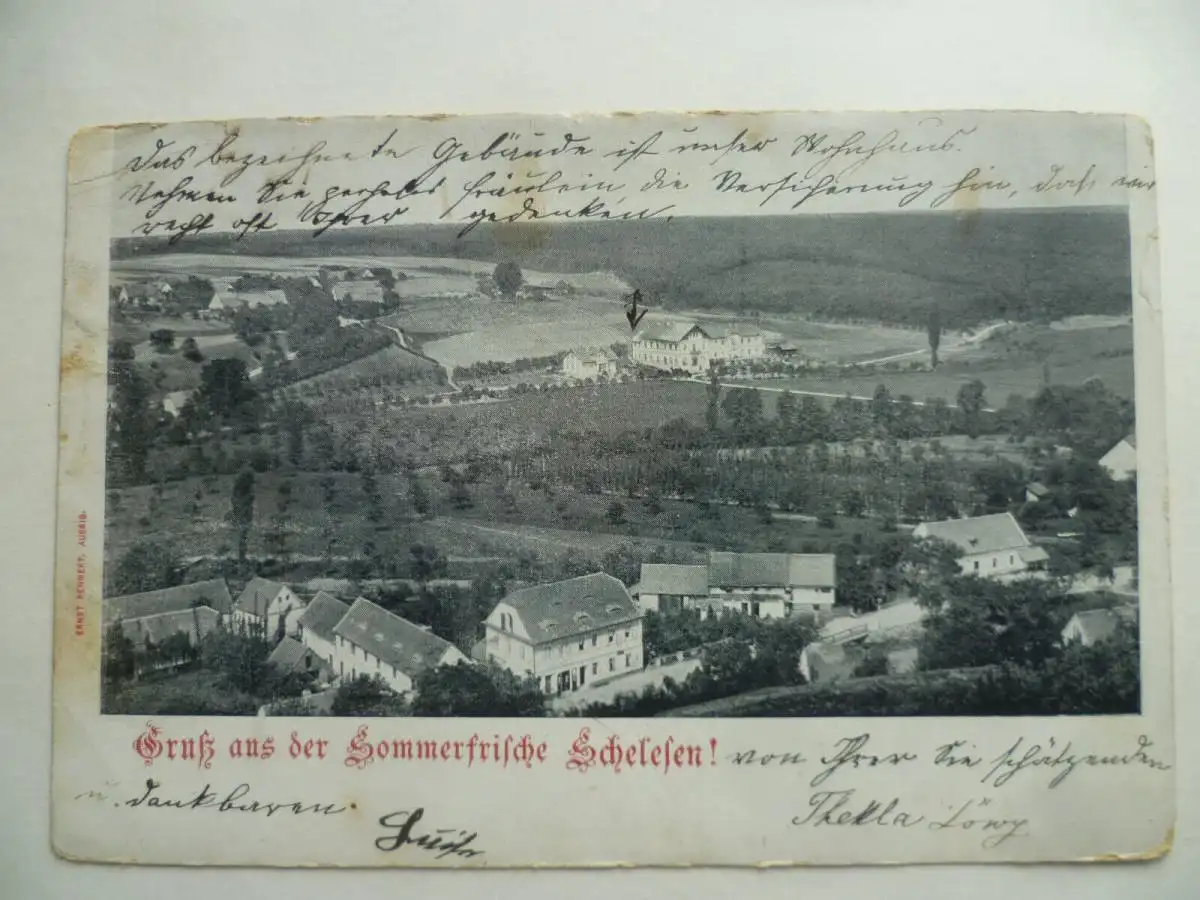 Das bezeichnete Gebäude ist unser Wohnhaus.
Nehmen Sie geehrtes Fräulein die Versicherung hin, daß wir
recht oft Ihrer gedenken.
ERNST RENNERT, AUSSIG.
Gruß aus der Sommerfrische Schelesen! von Ihrer Sie schätzenden
u. dankbaren Thekla Löwy